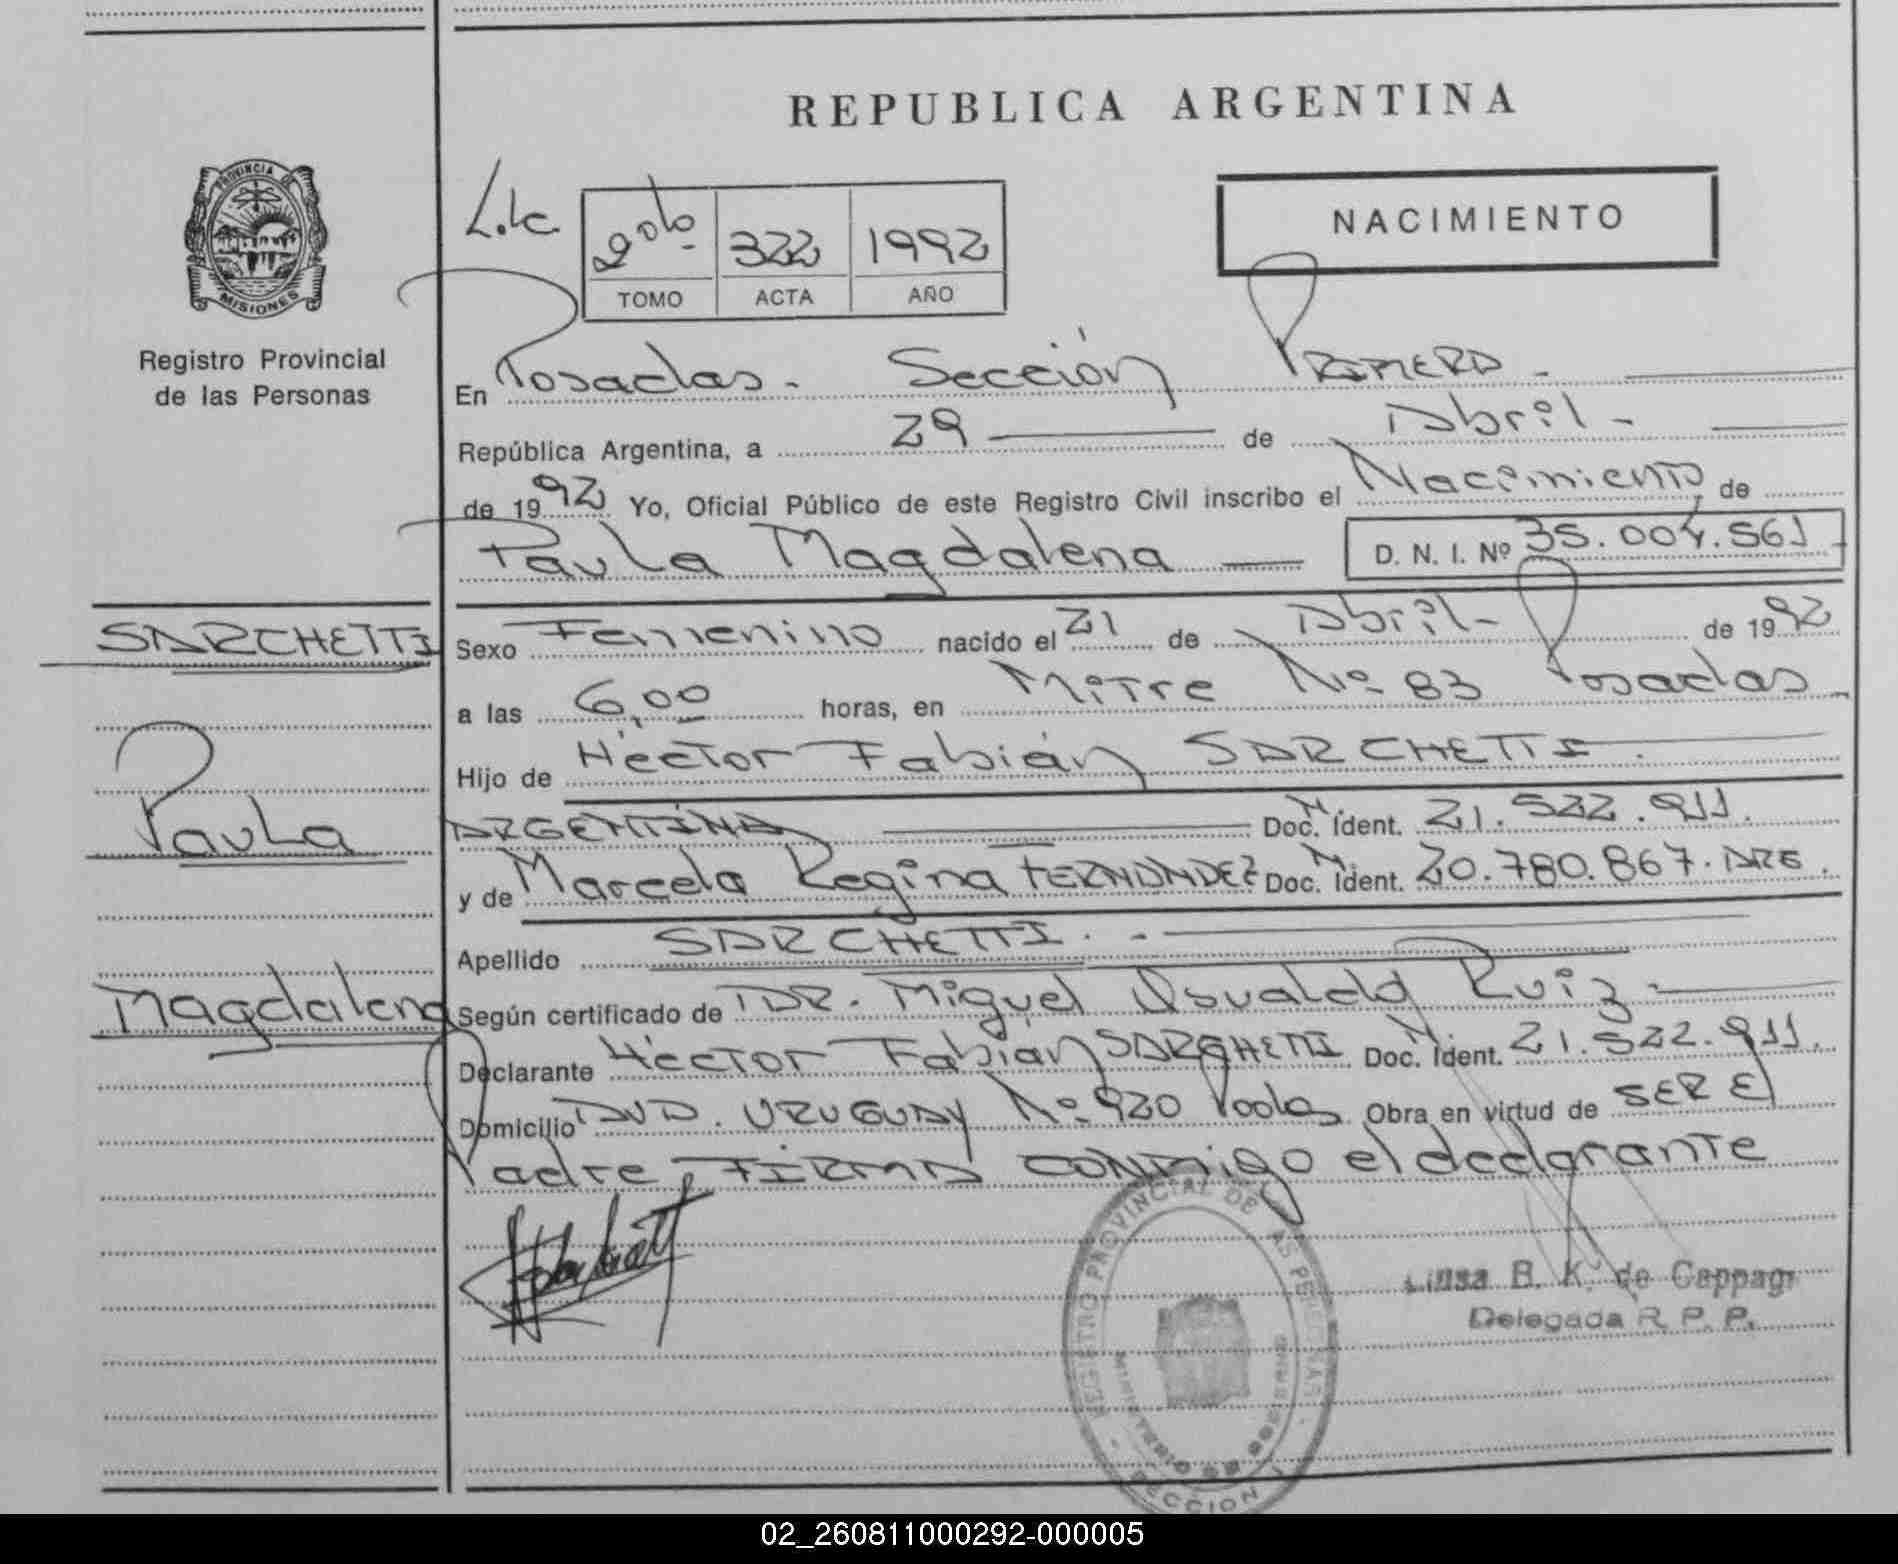 REPUBLICA ARGENTINA
PROVINCIA DE
MISIONES
Registro Provincial
de las Personas
2do 322 1992
TOMO ACTA AÑO
NACIMIENTO
En Posadas - Sección PRIMERA -
República Argentina, a 29 de Abril -
de 1992 Yo, Oficial Público de este Registro Civil inscribo el Nacimiento de
Paula Magdalena D. N. I. Nº 35.004.561
SARCHETTI
Paula
Magdalena
Sexo Femenino nacido el 21 de Abril - de 1992
a las 6,00 horas, en Mitre Nº 83 Posadas
Hijo de Héctor Fabián SARCHETTI
ARGENTINA Doc. N. Ident. 21.522.911.
y de Marcela Regina FERNANDEZ Doc. N. Ident. 20.780.867. ARG.
Apellido SARCHETTI. -
Según certificado de DR. Miguel Osvaldo Ruiz -
Declarante Héctor Fabián SARCHETTI Doc. N. Ident. 21.522.911.
Domicilio AVD. URUGUAY Nº 920 Pdas Obra en virtud de SER El
Padre, FIRMA CONMigo el declarante
REGISTRO PROVINCIAL DE LAS PERSONAS
MINISTERIO DE GOBIERNO
SECCION 1
B. K. de Cappagi
Delegada R. P. P.
02_260811000292-000005